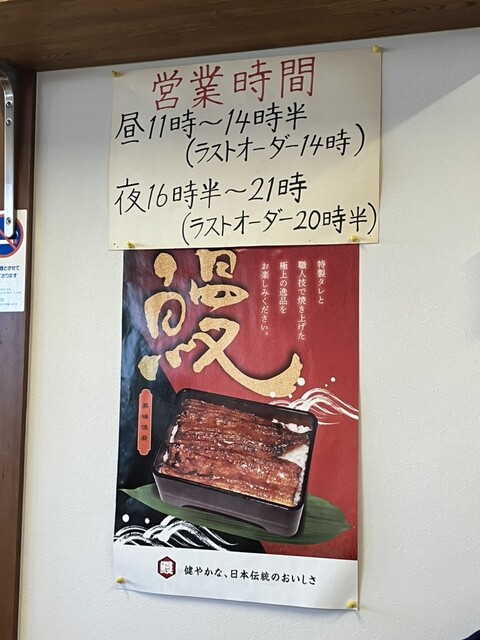 営業時間
昼11時～14時半
(ラストオーダー14時)
夜16時半～21時
(ラストオーダー20時半)
鰻
特製タレと
職人技で焼き上げた
極上の逸品を
お楽しみください。
健やかな、日本伝統のおいしさ